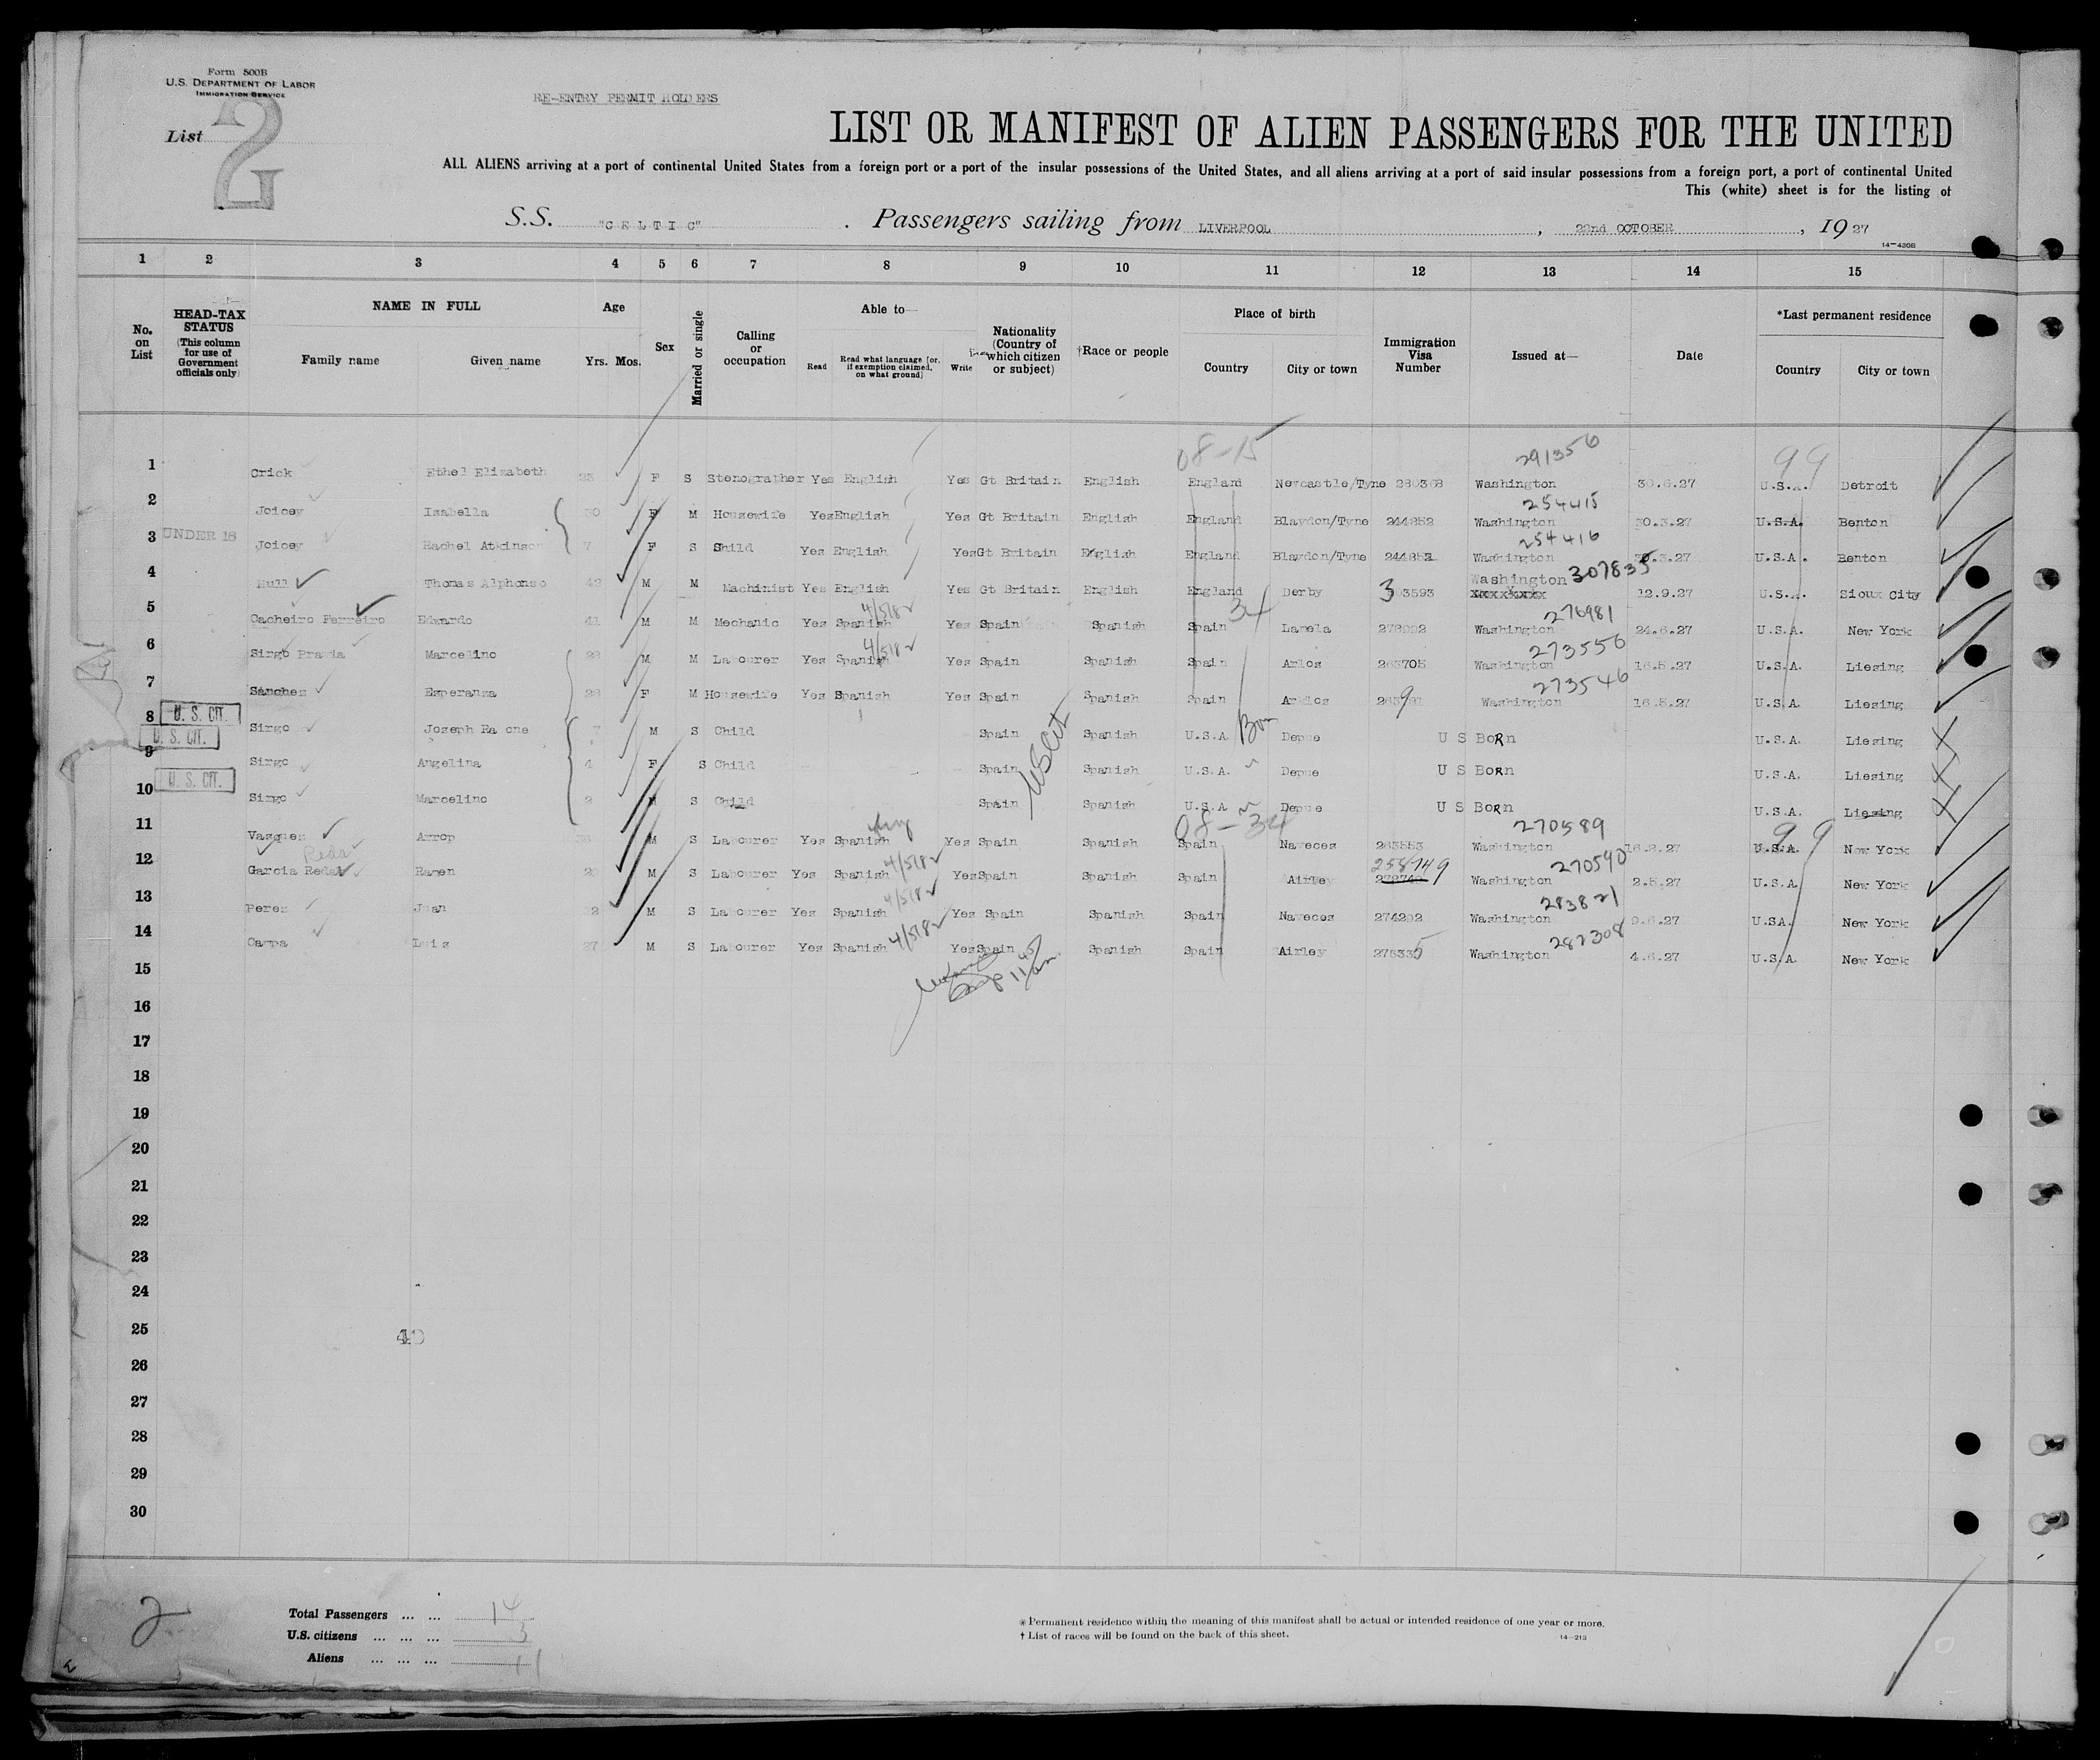 Form 500B
U.S. DEPARTMENT OF LABOR
IMMIGRATION SERVICE
List 2
RE-ENTRY PERMIT HOLDERS
LIST OR MANIFEST OF ALIEN PASSENGERS FOR THE UNITED
ALL ALIENS arriving at a port of continental United States from a foreign port or a port of the insular possessions of the United States, and all aliens arriving at a port of said insular possessions from a foreign port, a port of continental United
This (white) sheet is for the listing of
S.S. "CELTIC" . Passengers sailing from LIVERPOOL , 22nd OCTOBER , 1927
14-430B
1 2 3 4 5 6 7 8 9 10 11 12 13 14 15
No. on List
HEAD-TAX STATUS (This column for use of Government officials only)
NAME IN FULL
Family name Given name
Age
Yrs. Mos.
Sex
Married or single
Calling or occupation
Able to—
Read Read what language [or, if exemption claimed, on what ground] Write
Nationality (Country of which citizen or subject)
†Race or people
Place of birth
Country City or town
Immigration Visa Number
Issued at—
Date
*Last permanent residence
Country City or town
08-15 291356 99
1 Crick Ethel Elizabeth F S Stenographer Yes English Yes Gt Britain English England Newcastle/Tyne 280368 Washington 30.6.27 U.S.A. Detroit
254415
2 Joicey Isabella F M Housewife Yes English Yes Gt Britain English England Blaydon/Tyne 244852 Washington 30.3.27 U.S.A. Benton
254416
3 UNDER 16 Joicey Rachel Atkinson 7 F S Child Yes English Yes Gt Britain English England Blaydon/Tyne 244853 Washington 30.3.27 U.S.A. Benton
Washington 307835
4 Hull Thomas Alphonso 42 M M Machinist Yes English Yes Gt Britain English England Derby 303593 xxxxxxxxxx 12.9.27 U.S.A. Sioux City
4/518 34 276981
5 Cacheiro Ferreiro Edwardo 41 M M Mechanic Yes Spanish Yes Spain Spanish Spain Lamela Washington 24.6.27 U.S.A. New York
4/518 273556
6 Sirgo Pravia Marcelino M M Labourer Yes Spanish Yes Spain Spanish Spain Arlos 263705 Washington 16.5.27 U.S.A. Liesing
273546
7 Sanchez Esperanza 28 F M Housewife Yes Spanish Yes Spain Spanish Spain Washington 16.5.27 U.S.A. Liesing
8 U. S. CIT. Sirgo Joseph M S Child Spain Spanish U.S.A. Born Depue U S BORN U.S.A. Liesing
U. S. CIT.
9 Sirgo Angelina 4 F S Child US Cit Spain Spanish U.S.A. " Depue U S BORN U.S.A. Liesing
U. S. CIT.
10 Sirgo Marcelino 2 M S Child Spain Spanish U.S.A. " Depue U S BORN U.S.A. Liesing
08-34 270589 99
11 Vasquez Arrop M S Labourer Yes Spanish Yes Spain Spanish Spain Naveces 263553 Washington U.S.A. New York
Reda 4/518 258749 270590
12 Garcia Reda Ramon M S Labourer Yes Spanish Yes Spain Spanish Spain Airley Washington 2.5.27 U.S.A. New York
4/518 283821
13 Perez Juan M S Labourer Yes Spanish Yes Spain Spanish Spain Naveces 274292 Washington U.S.A. New York
4/518 282308
14 Campa Luis 27 M S Labourer Yes Spanish Yes Spain Spanish Spain Airley 275335 Washington 4.6.27 U.S.A. New York
15
16
17
18
19
20
21
22
23
24
25
26
27
28
29
30
2
Total Passengers ... ... 14
U.S. citizens ... ... ... 3
Aliens ... ... ... 11
* Permanent residence within the meaning of this manifest shall be actual or intended residence of one year or more.
† List of races will be found on the back of this sheet.
14-213